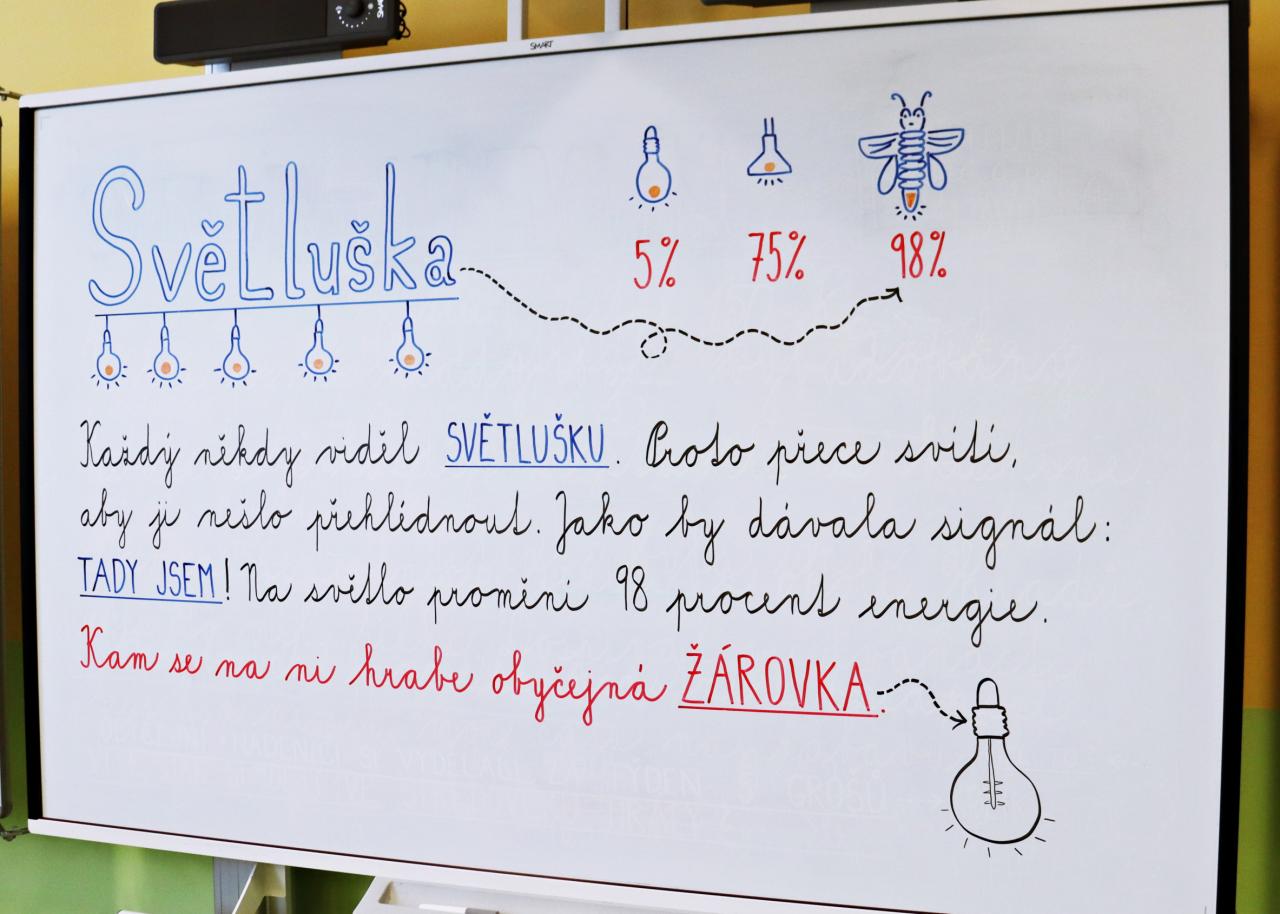 SMART
Světluška
5% 75% 98%
Každý někdy viděl SVĚTLUŠKU. Proto přece svítí,
aby ji nešlo přehlédnout. Jako by dávala signál:
TADY JSEM! Na světlo promění 98 procent energie.
Kam se na ni hrabe obyčejná ŽÁROVKA.